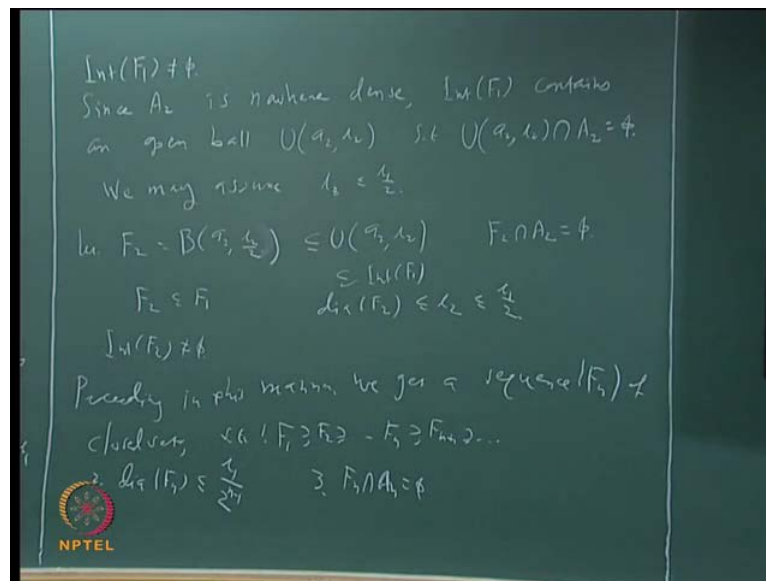 Int(F₁) ≠ φ.
Since A₂ is nowhere dense, Int(F₁) contains
an open ball U(a₂, r₂) s.t U(a₂, r₂) ∩ A₂ = φ.
We may assume r₂ ≤ r₁/2.
Let F₂ = B(a₂, r₂/2) ⊆ U(a₂, r₂) F₂ ∩ A₂ = φ.
⊆ Int(F₁)
F₂ ⊆ F₁ dia(F₂) ≤ r₂ ≤ r₁/2.
Int(F₂) ≠ φ
Proceeding in this manner we get a sequence (Fₙ) of
closed sets, s.t. 1. F₁ ⊇ F₂ ⊇ - Fₙ ⊇ Fₙ₊₁ ⊇ ...
2. dia(Fₙ) ≤ r₁/2ⁿ⁻¹ 3. Fₙ ∩ Aₙ = φ
NPTEL